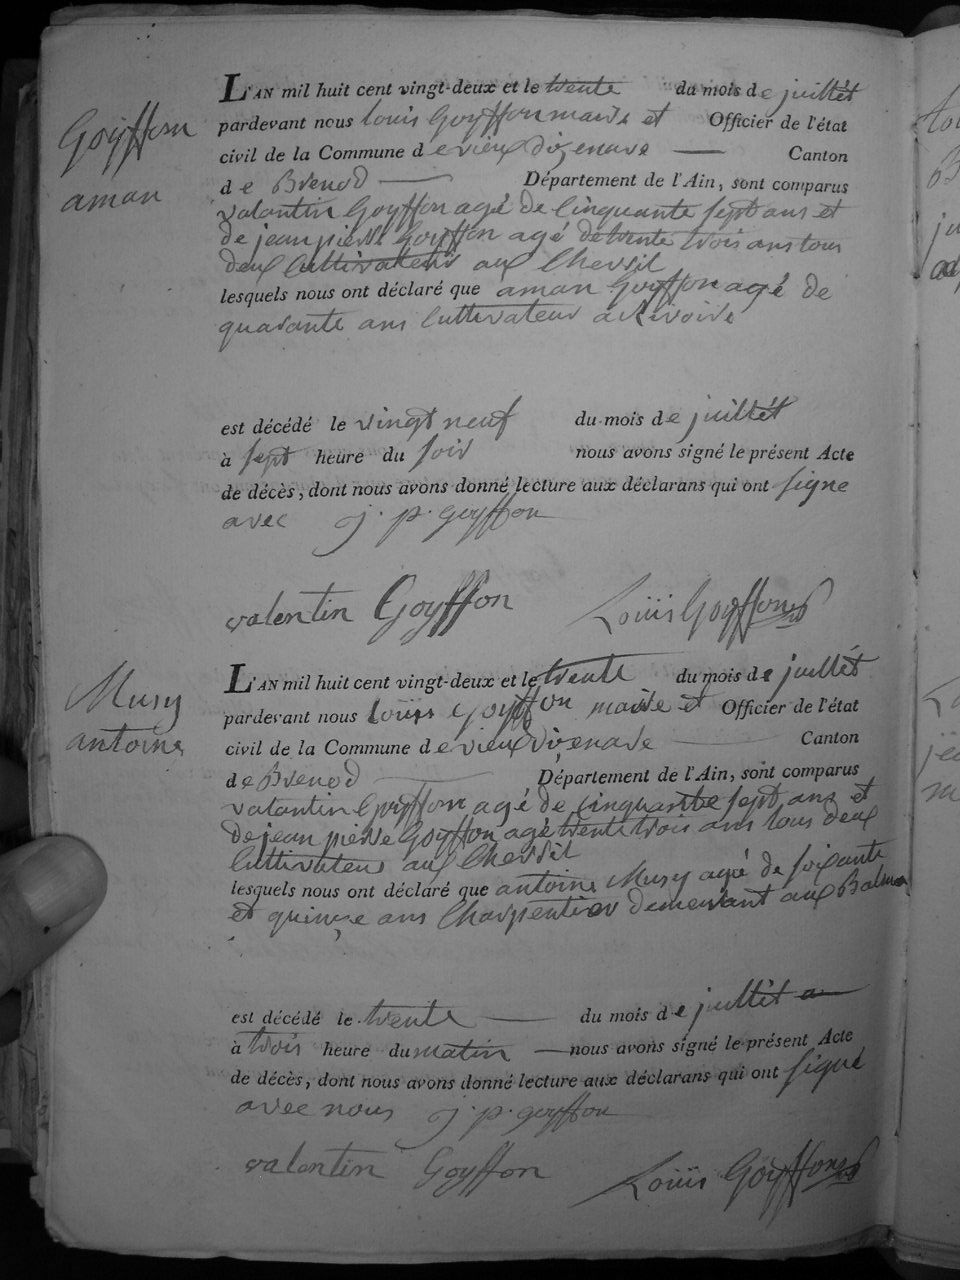 Goyffon
aman
L'AN mil huit cent vingt-deux et le trente du mois de juillét
pardevant nous louis Goyffon maire et Officier de l'état
civil de la Commune de vieux dizenave Canton
de Brenod Département de l'Ain, sont comparus
valantin Goyffon agé de Cinquante sept ans et
de jean pierre Goyffon agé de trente trois ans tous
deux Cultivateurs aux Chevril
lesquels nous ont déclaré que aman Goyffon agé de
quarante ans Cultivateur a
est décédé le vingt neuf du mois de juillét
à sept heure du soir nous avons signé le présent Acte
de décès, dont nous avons donné lecture aux déclarans qui ont signe
avec j. p. goyffon
valentin Goyffon Loüis Goyffon
Musy
antoine
L'AN mil huit cent vingt-deux et le trente du mois de juillét
pardevant nous Loüis Goyffon maire et Officier de l'état
civil de la Commune de vieux dizenave Canton
de Brenod Département de l'Ain, sont comparus
valantin Goyffon agé de Cinquante sept ans et
de jean pierre Goyffon agé trente trois ans tous deux
Cultivateurs aux Chevril
lesquels nous ont déclaré que antoine Musy agé de soixante
et quinze ans Charpentier demeurant aux Balmes
est décédé le trente du mois de juillét
à trois heure du matin nous avons signé le présent Acte
de décès, dont nous avons donné lecture aux déclarans qui ont signé
avec nous j. p. goyffon
valentin Goyffon Loüis Goyffon